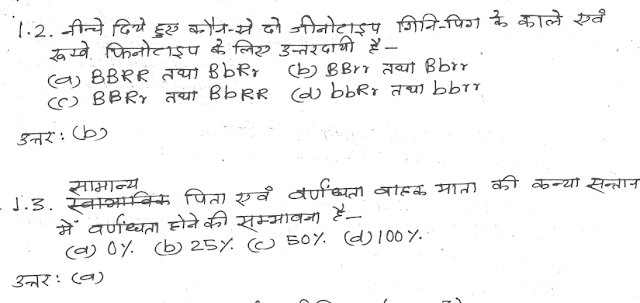 1.2. नीचे दिये हुए कौन-से दो जीनोटाइप गिनि-पिग के काले एवं
रूखे फिनोटाइप के लिए उत्तरदायी है –
(a) BBRR तथा BbRr (b) BBrr तथा Bbrr
(c) BBRr तथा BbRR (d) bbRr तथा bbrr
उत्तर : (b)
सामान्य
1.3. स्वाभाविक पिता एवं वर्णान्धता वाहक माता की कन्या सन्तान
में वर्णान्धता होने की सम्भावना है –
(a) 0% (b) 25% (c) 50% (d) 100%.
उत्तर : (a)